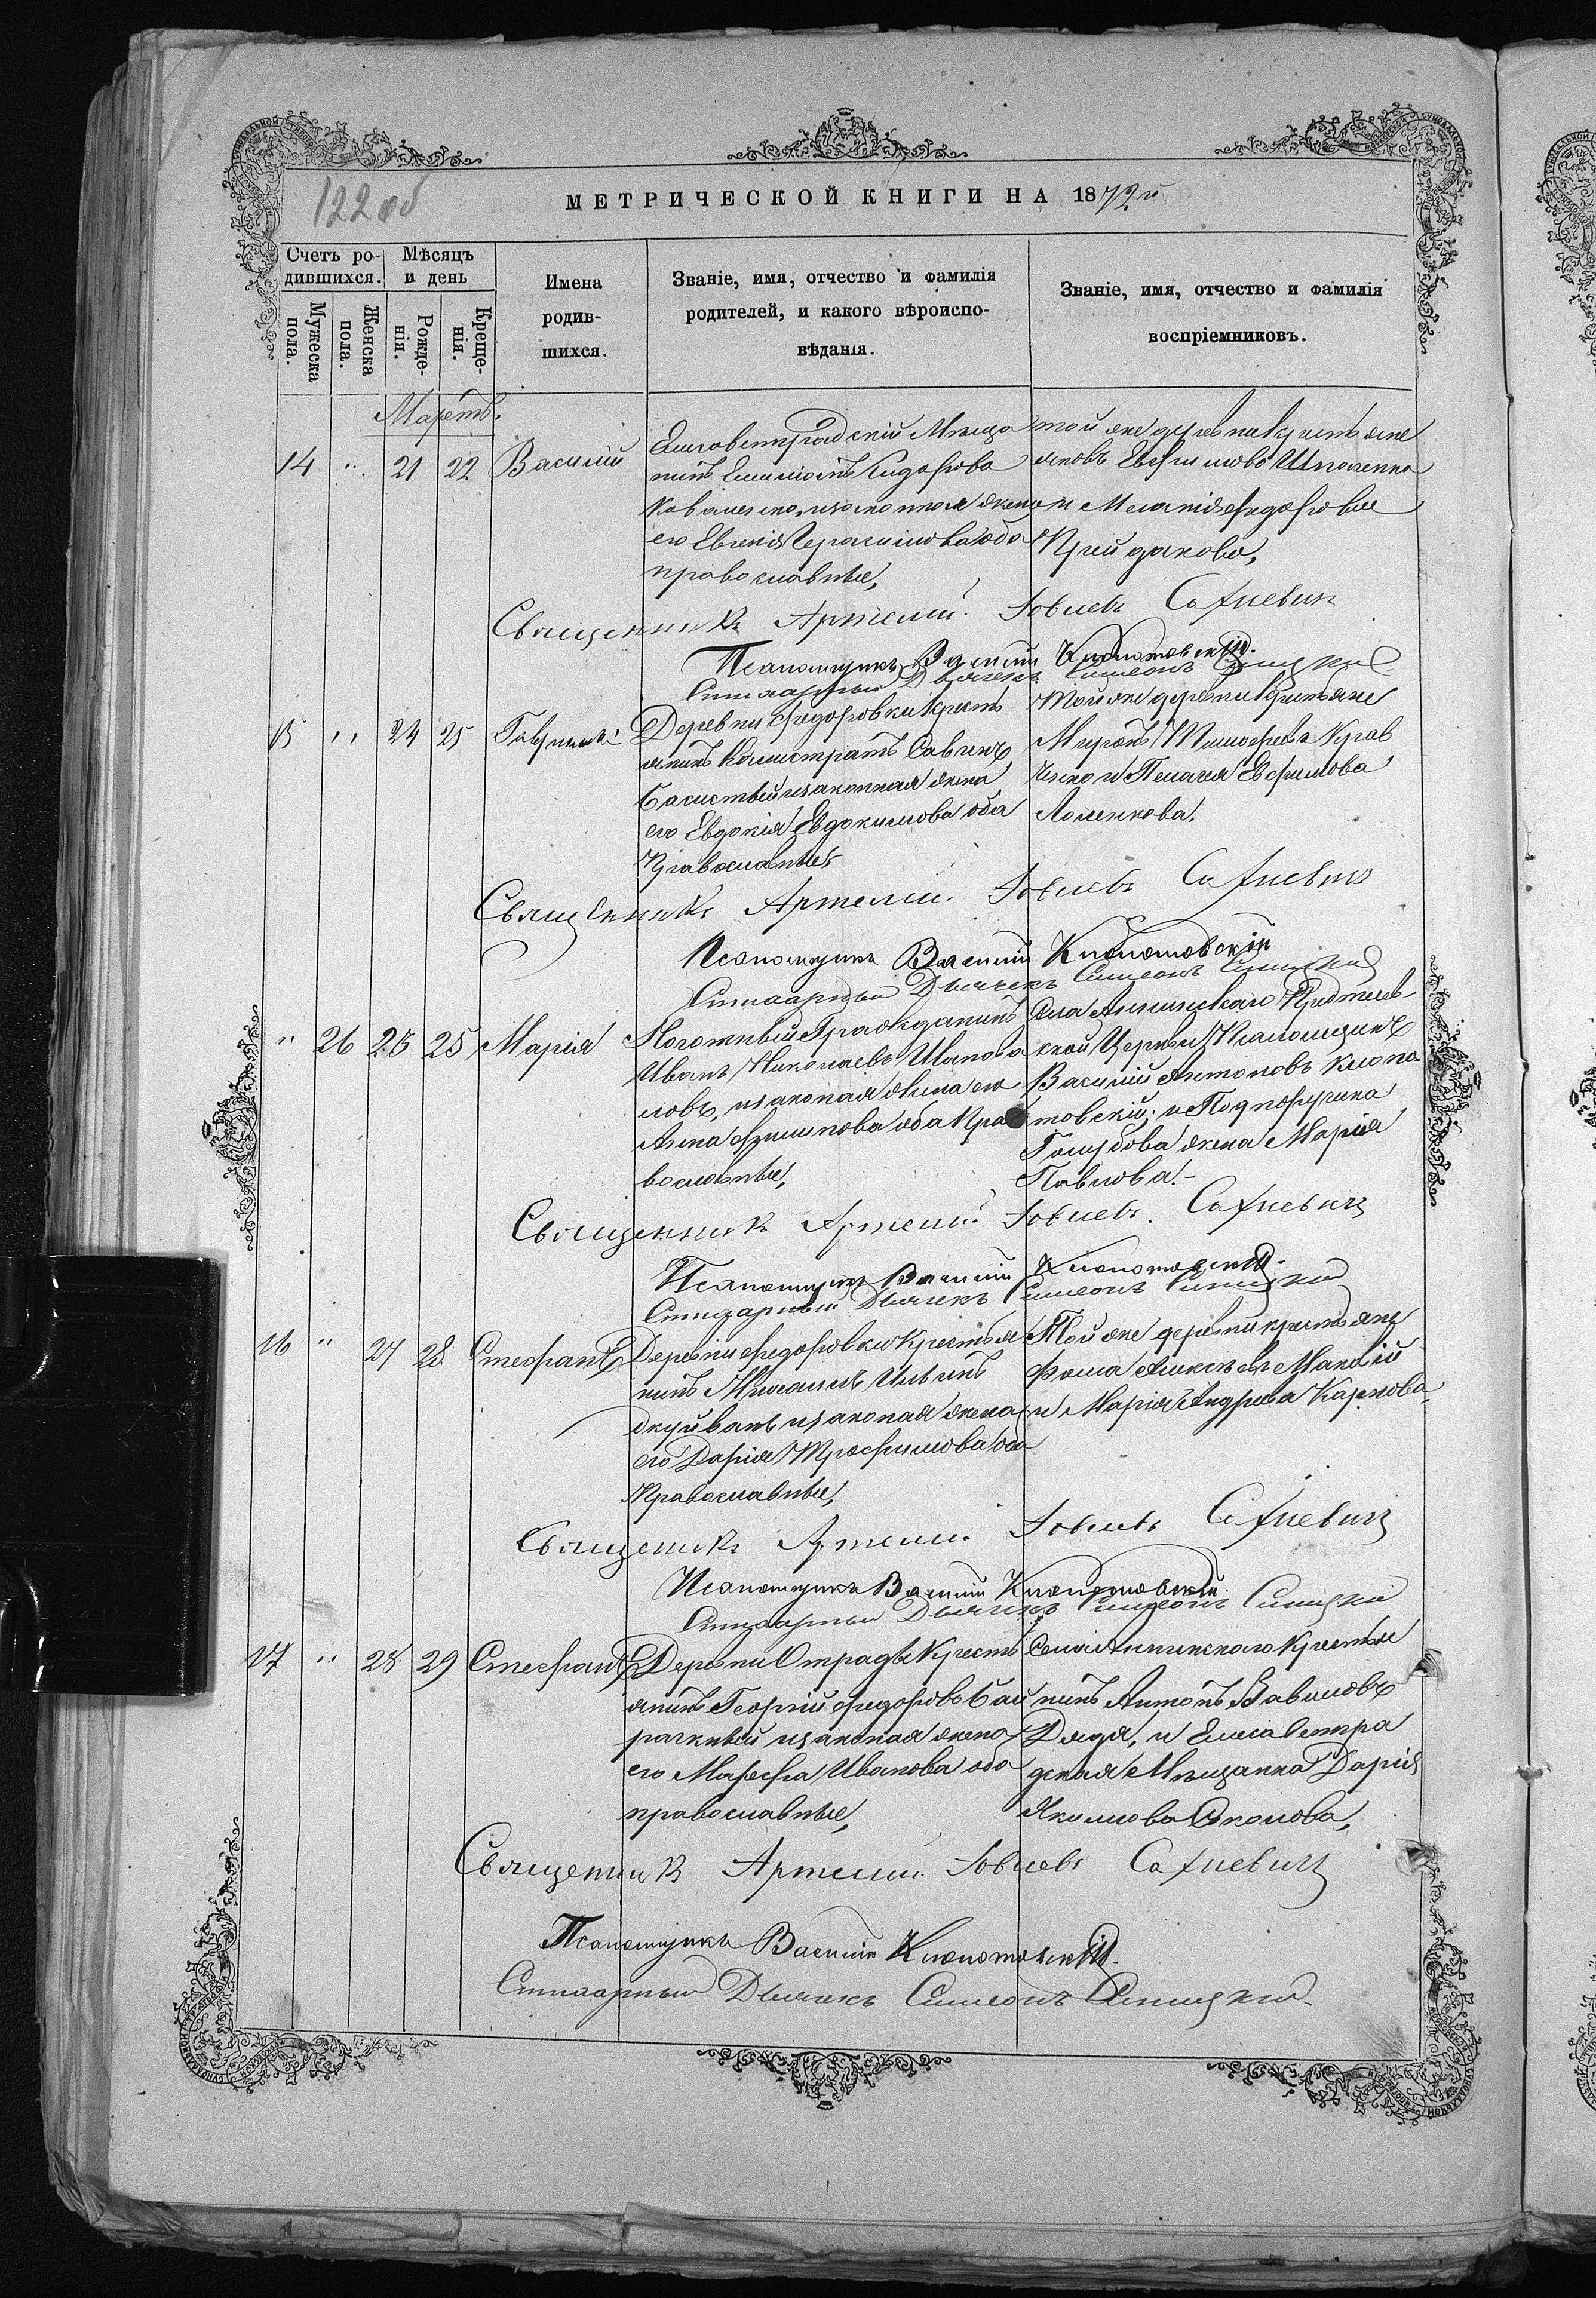 122 об
МЕТРИЧЕСКОЙ КНИГИ НА 1872й
Счетъ ро-
дившихся.
Мѣсяцъ
и день
Мужеска
пола.
Женска
пола.
Рожде-
нія.
Креще-
нія.
Имена
родив-
шихся.
Званіе, имя, отчество и фамилія
родителей, и какого вѣроиспо-
вѣданія.
Званіе, имя, отчество и фамилія
воспріемниковъ.
Мартъ.
14 " 21 22 Василій
Елисаветградскій Мѣща
нинъ Сидорова
законная жена
его Герасимова оба
православные,
той же деревни Крестьяне
Яковъ Ефимовъ
и Меланія Федорова
Священникъ Артемій Іовлевъ Сахневичъ
Псаломщикъ Василій Клопотовскій.
Стихарный Дьячекъ Симеонъ Синицкій
15 " 24 25 Гавріилъ
Деревни Федоровки Крестъ
янинъ Каллистратъ Саввинъ
законная жена
его Евдокія Евдокимова оба
Православные
Той же деревни Крестьяне
Миронъ Тимофеевъ Крав
ченко и Пелагея Ефимова
Священникъ Артемій Іовлевъ Сахневичъ
Псаломщикъ Василій Клопотовскій
Стихарный Дьячекъ Симеонъ Синицкій
" 26 25 25 Марія
Почотный Гражданинъ
Иванъ Николаевъ Шапова
ловъ, и законая жена его
Анна оба Пра
вославные,
Села Аннинскаго Предтечев-
ской Церкви Псаломщикъ
Василій Антоновъ Клопо
товскій; и Подпоручика
Голубова жена Марія
Павлова.-
Священникъ Артемій Іовлевъ. Сахневичъ
Псаломщикъ Василій Клопотовскій.
Стихарный Дьячекъ Симеонъ Синицкій
16 " 27 28 Стефанъ
Деревни Федоровки Крестья
нинъ Михаилъ Ильинъ
и законая жена
его Дарія Трофимова оба
Православные,
Той же деревни крестьяне
Фома Алексѣевъ
и Марія Андреева Карпова,
Священикъ Артемій Іовлевъ Сахневичъ
Псаломщикъ Василій Клопотовскій.
Стихарный Дьячекъ Симеонъ Синицкій
17 " 28 29 Стефанъ
Деревни Отрады Крестъ
янинъ Георгій Федоровъ Бай
рачный и законая жена
его Марфа Иванова оба
православные,
Села Аннинскаго Крестья
нинъ Антонъ Вавиловъ
Дядя, и Елисаветгра
дская Мѣщанка Дарія
Якимова
Священникъ Артемій Іовлевъ Сахневичъ
Псаломщикъ Василій Клопотовскій.
Стихарный Дьячекъ Симеонъ Синицкій.